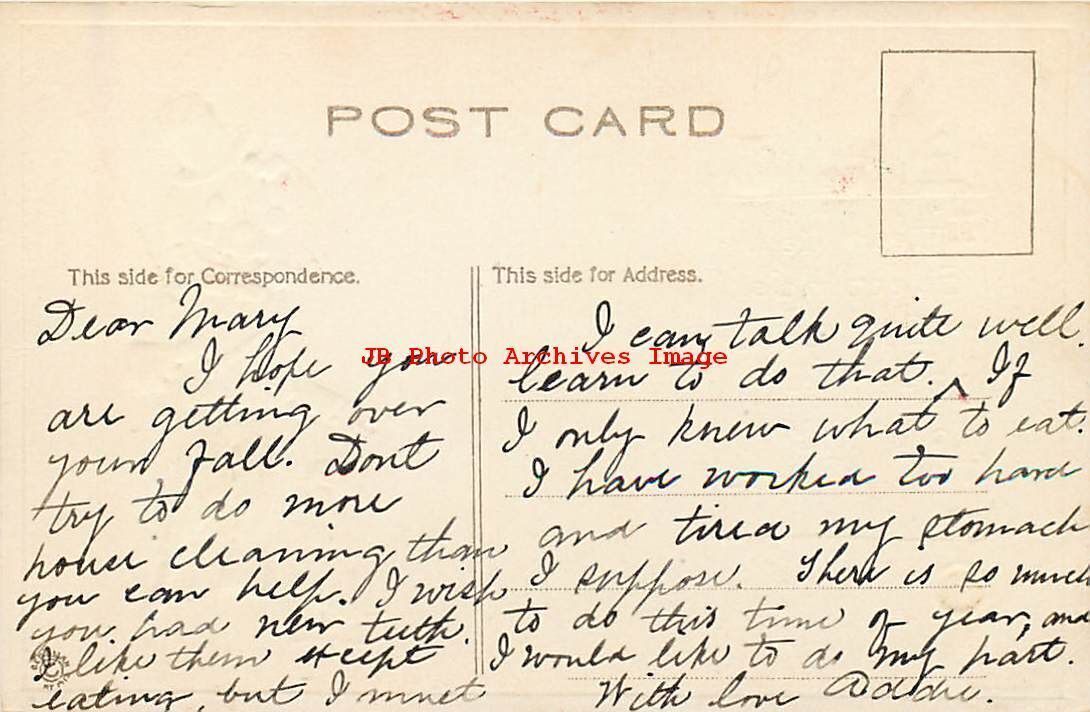 POST CARD
This side for Correspondence.
Dear Mary
I hope you
are getting over
your fall. Dont
try to do more
house cleaning than
you can help. I wish
you had new teeth.
I like them except
eating, but I must
This side for Address.
I can talk quite well.
learn to do that. ^ If
I only knew what to eat.
I have worked too hard
and tired my stomach
I suppose. There is so much
to do this time of year, and
I would like to do my part.
With love Addie.
JB Photo Archives Image